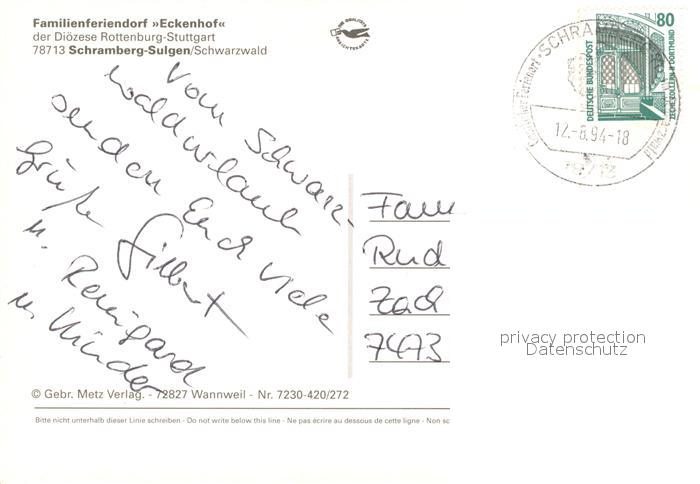 Familienferiendorf »Eckenhof«
der Diözese Rottenburg-Stuttgart
78713 Schramberg-Sulgen/Schwarzwald
Vom Schwarz-
waldurlaub
senden Euch viele
Grüße Gilbert
u. Reingard
u. Kinder
© Gebr. Metz Verlag. - 72827 Wannweil - Nr. 7230-420/272
Bitte nicht unterhalb dieser Linie schreiben - Do not write below this line - Ne pas écrire au dessous de cette ligne - Non sc
80
DEUTSCHE BUNDESPOST
ZECHE ZOLLERN II · DORTMUND
SCHRAM
12.-8.94-18
Fam
Rud
Zad
7473
privacy protection
Datenschutz